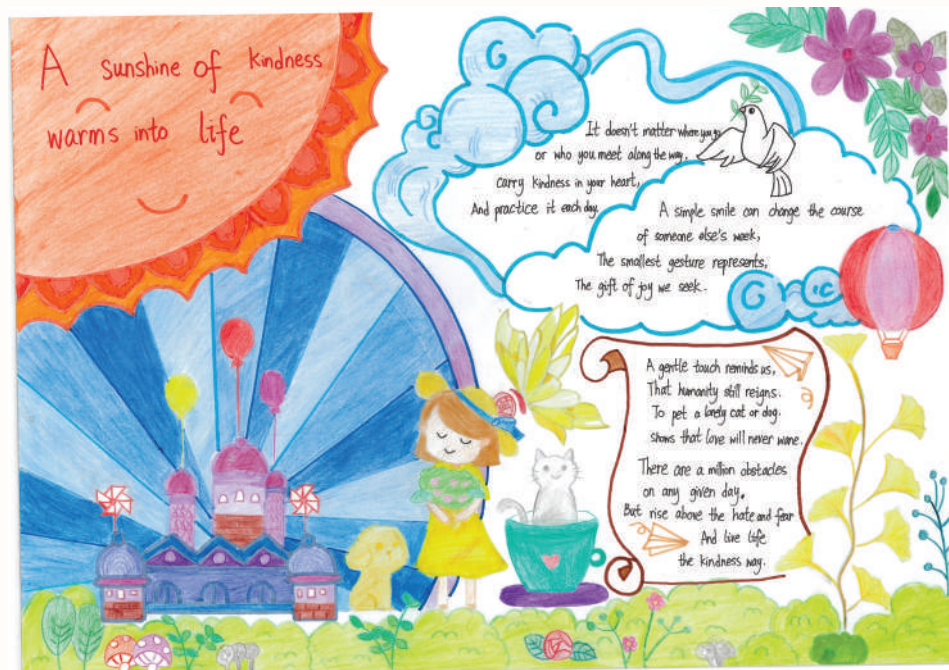 A sunshine of kindness
warms into life
It doesn't matter where you go
or who you meet along the way,
carry kindness in your heart,
And practice it each day.
A simple smile can change the course
of someone else's week,
The smallest gesture represents,
The gift of joy we seek.
A gentle touch reminds us,
That humanity still reigns.
To pet a lonely cat or dog.
shows that love will never wane.
There are a million obstacles
on any given day,
But rise above the hate and fear
And live life
the kindness way.